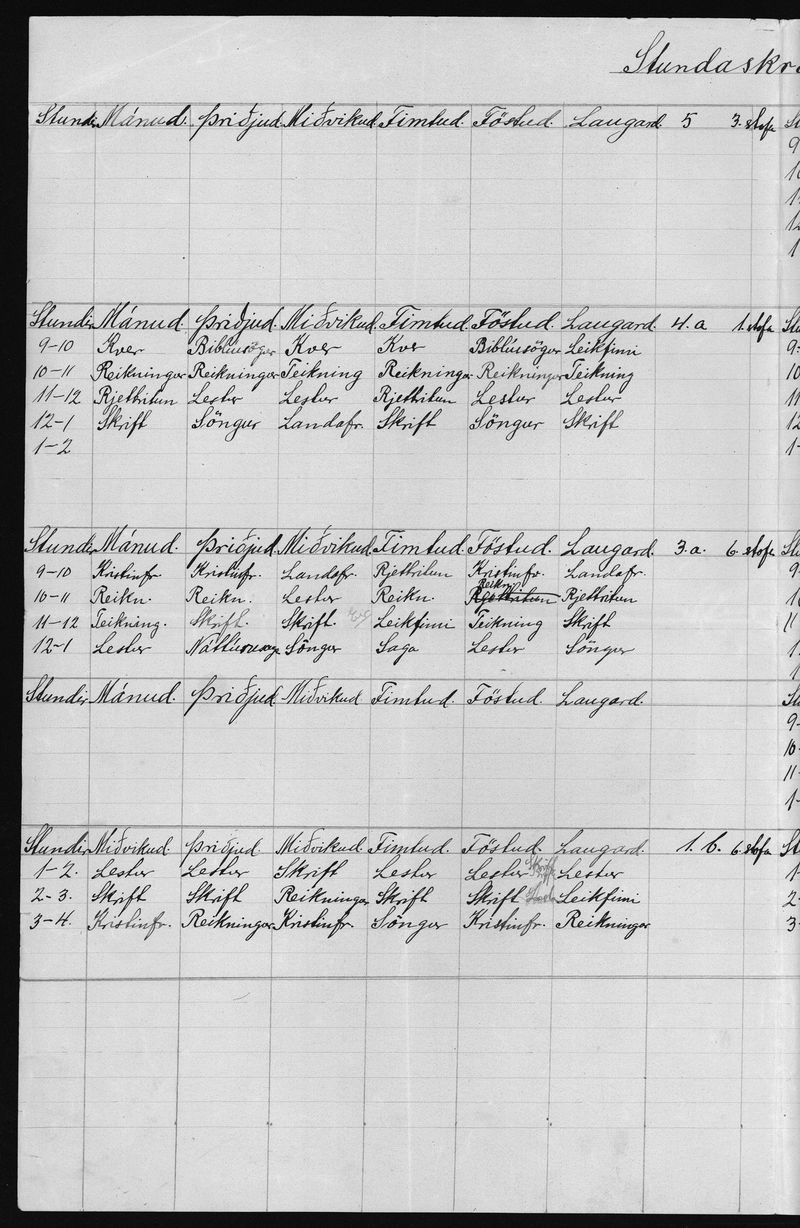 Stundaskrá
Stundir Mánud. Þriðjud. Miðvikud. Fimtud. Föstud. Laugard. 5 3. stofa
Stundir Mánud. Þriðjud. Miðvikud. Fimtud. Föstud. Laugard. 4. a 1. stofa
9-10 Kver Biblíusögur Kver Kver Biblíusögur Leikfimi
10-11 Reikningur Reikningur Teikning Reikningur Reikningur Teikning
11-12 Rjettritun Lestur Lestur Rjettritun Lestur Lestur
12-1 Skrift Söngur Landafr. Skrift Söngur Skrift
1-2
Stundir Mánud. Þriðjud. Miðvikud. Fimtud. Föstud. Laugard. 3. a. 6. stofa
9-10 Kristinfr. Kristinfr. Landafr. Rjettritun Kristinfr. Landafr.
10-11 Reikn. Reikn. Lestur Reikn. Reikn. Rjettritun Rjettritun
11-12 Teikning. Skrift. Skrift Leikfimi Teikning Skrift
12-1 Lestur Náttúrusaga Söngur Saga Lestur Söngur
Stundir Mánud. Þriðjud. Miðvikud Fimtud. Föstud. Laugard.
Stundir Miðvikud. Þriðjud Miðvikud. Fimtud. Föstud. Laugard. 1. b. 6 stofa
1-2. Lestur Lestur Skrift Lestur Lestur Skrift Lestur
2-3. Skrift Skrift Reikningur Skrift Skrift Leikfimi
3-4. Kristinfr. Reikningur Kristinfr. Söngur Kristinfr. Reikningur